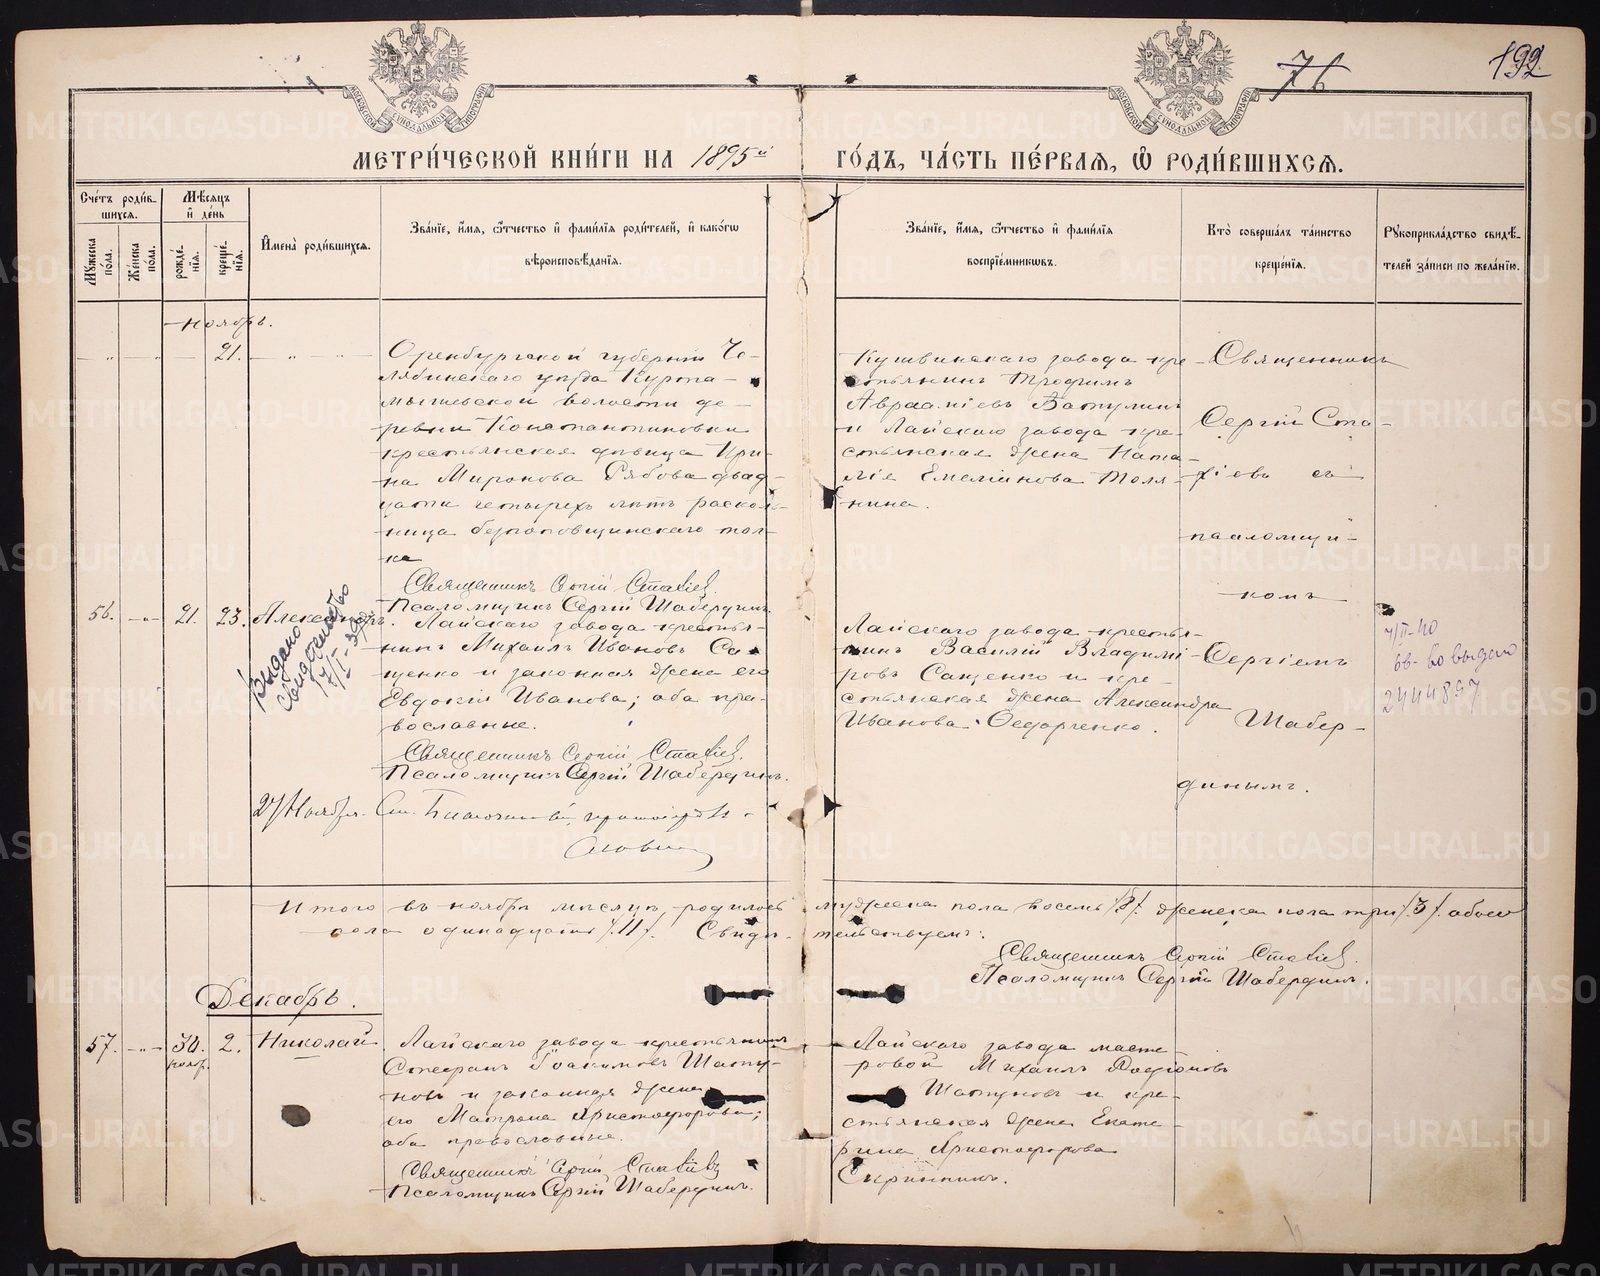 76
192
МЕТРИ́ЧЕСКОЙ КНИ́ГИ НА 1895й ГО́ДЪ, ЧА́СТЬ ПЕ́РВАЯ, Ѡ РОДИ́ВШИХСЯ.
Сче́тъ роди́в-
шихся.
Му́жеска по́ла.
Же́нска по́ла.
Мѣ́сяцъ
и де́нь
рожде́-
нія.
креще́-
нія.
Имена̀ роди́вшихся.
Зва́ніе, и́мя, о́тчество и фами́лія роди́телей, и како́гѡ
вѣроисповѣ́данія.
Зва́ніе, и́мя, о́тчество и фами́лія
воспріе́мникѡвъ.
Кто̀ соверша́лъ та́инство
креще́нія.
Рукоприкла́дство свидѣ́-
телей за́писи по жела́нію.
Ноябрь.
21.
Оренбургской губерніи Че-
лябинскаго уѣзда Курта-
мышевской волости де-
ревни Константиновки
крестьянская дѣвица Ири-
на Миронова Рябова двад-
цати четырехъ лѣтъ расколь-
ница безпоповщинскаго тол-
ка
Священникъ Сергій Стахіев.
Псаломщикъ Сергій Шабердинъ.
Кушвинскаго завода кре-
стьянинъ Трофимъ
Авраамiевъ Ватулинъ
и Лайскаго завода кре-
стьянская жена Ната-
лія Емеліянова Толя-
нина.
Священникъ
Сергій Ста-
хіевъ съ
псаломщи-
комъ
Сергіемъ
Шабер-
динымъ.
56. 21. 23. Александръ.
Выдано
свидѣтельство
17/I-
Лайскаго завода крестья-
нинъ Михаилъ Ивановъ Са-
щенко и законная жена его
Евдокія Иванова; оба пра-
вославные.
Священникъ Сергій Стахіев.
Псаломщикъ Сергій Шабердинъ.
Лайскаго завода крестья-
нинъ Василій Владимі-
ровъ Сащенко и кре-
стьянская жена Александра
Иванова Ѳедорченко.
7/II-40
св-во выдано
2444857
27 Ноября.
Итого въ ноябрѣ мѣсяцѣ родилось мужеска пола восемь /8/. женска пола три /3/. обоего
пола одинадцать /11/. Свидѣтельствуемъ:
Священникъ Сергій Стахіев.
Псаломщикъ Сергій Шабердинъ.
Декабрь.
57. 30. нояб. 2. Николай
Лайскаго завода крестьянинъ
Стефанъ Іоакимовъ Шату-
новъ и законная жена
его Матрона Христофорова;
оба православные.
Священникъ Сергій Стахіевъ
Псаломщикъ Сергій Шабердинъ.
Лайскаго завода масте-
ровой Михаилъ Родіоновъ
Шатуновъ и кре-
стьянская жена Екате-
рина Христофорова
Скрипкина.